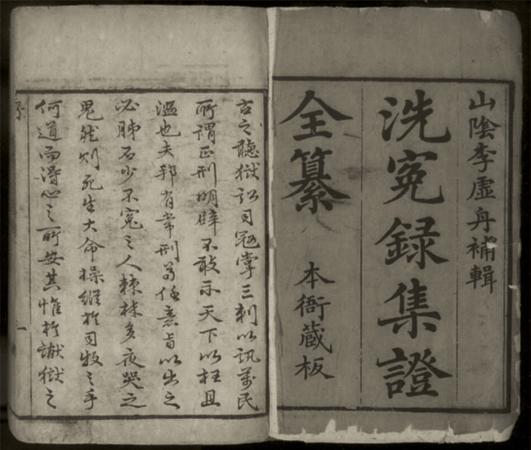 山陰李虛舟補輯
洗冤録集證
全纂 本衙藏板
古之聽獄訟司寇掌三刺以訊萬民
所謂正刑明辟不敢示天下以枉且
濫也夫邦有常刑苟任意旨以出之
必肺石少不冤之人棘林多夜哭之
鬼然則死生大命操縱於司牧之手
何道而潛心之所安其惟於讞獄之
一